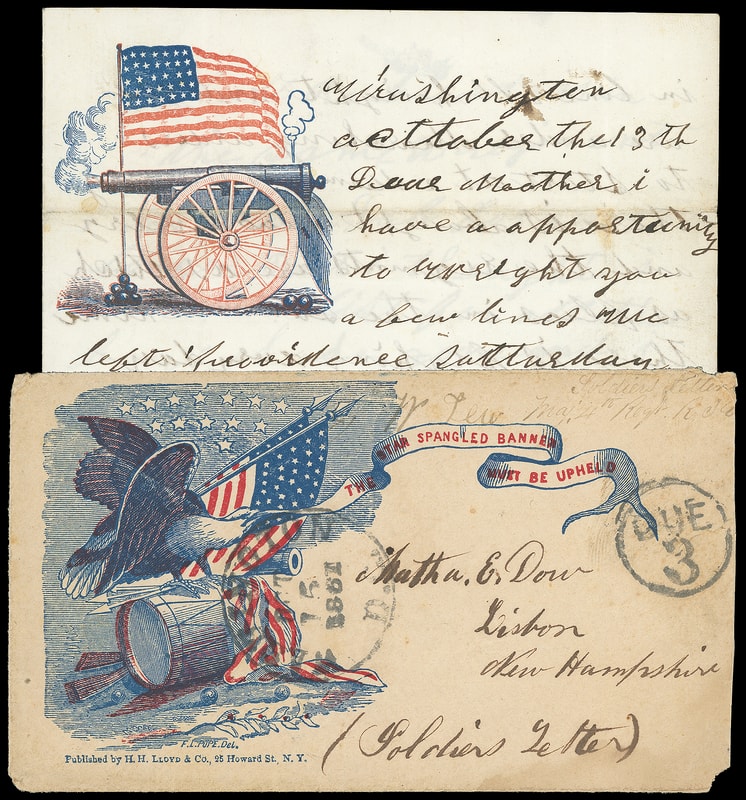 Wrushington
acttober the 13 th
Dear Moather i
have a apportunity
to wreight you
a bew lines We
left providence Satturday
Soldiers Letter
W. Tew
Maj. 4th Regt. R. I.
THE STAR SPANGLED BANNER
MUST BE UPHELD
DUE
3
WASHINGTON
OCT
15
1861
D.
Matha. E. Dow
Lisbon
New Hampshire
(Soldiers Letter)
F.C. POPE. Del.
Published by H. H. LLOYD & CO., 25 Howard St, N. Y.